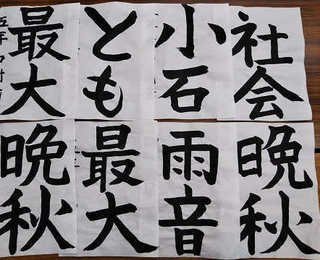 最大
とも
小石
社会
晩秋
最大
雨音
晩秋